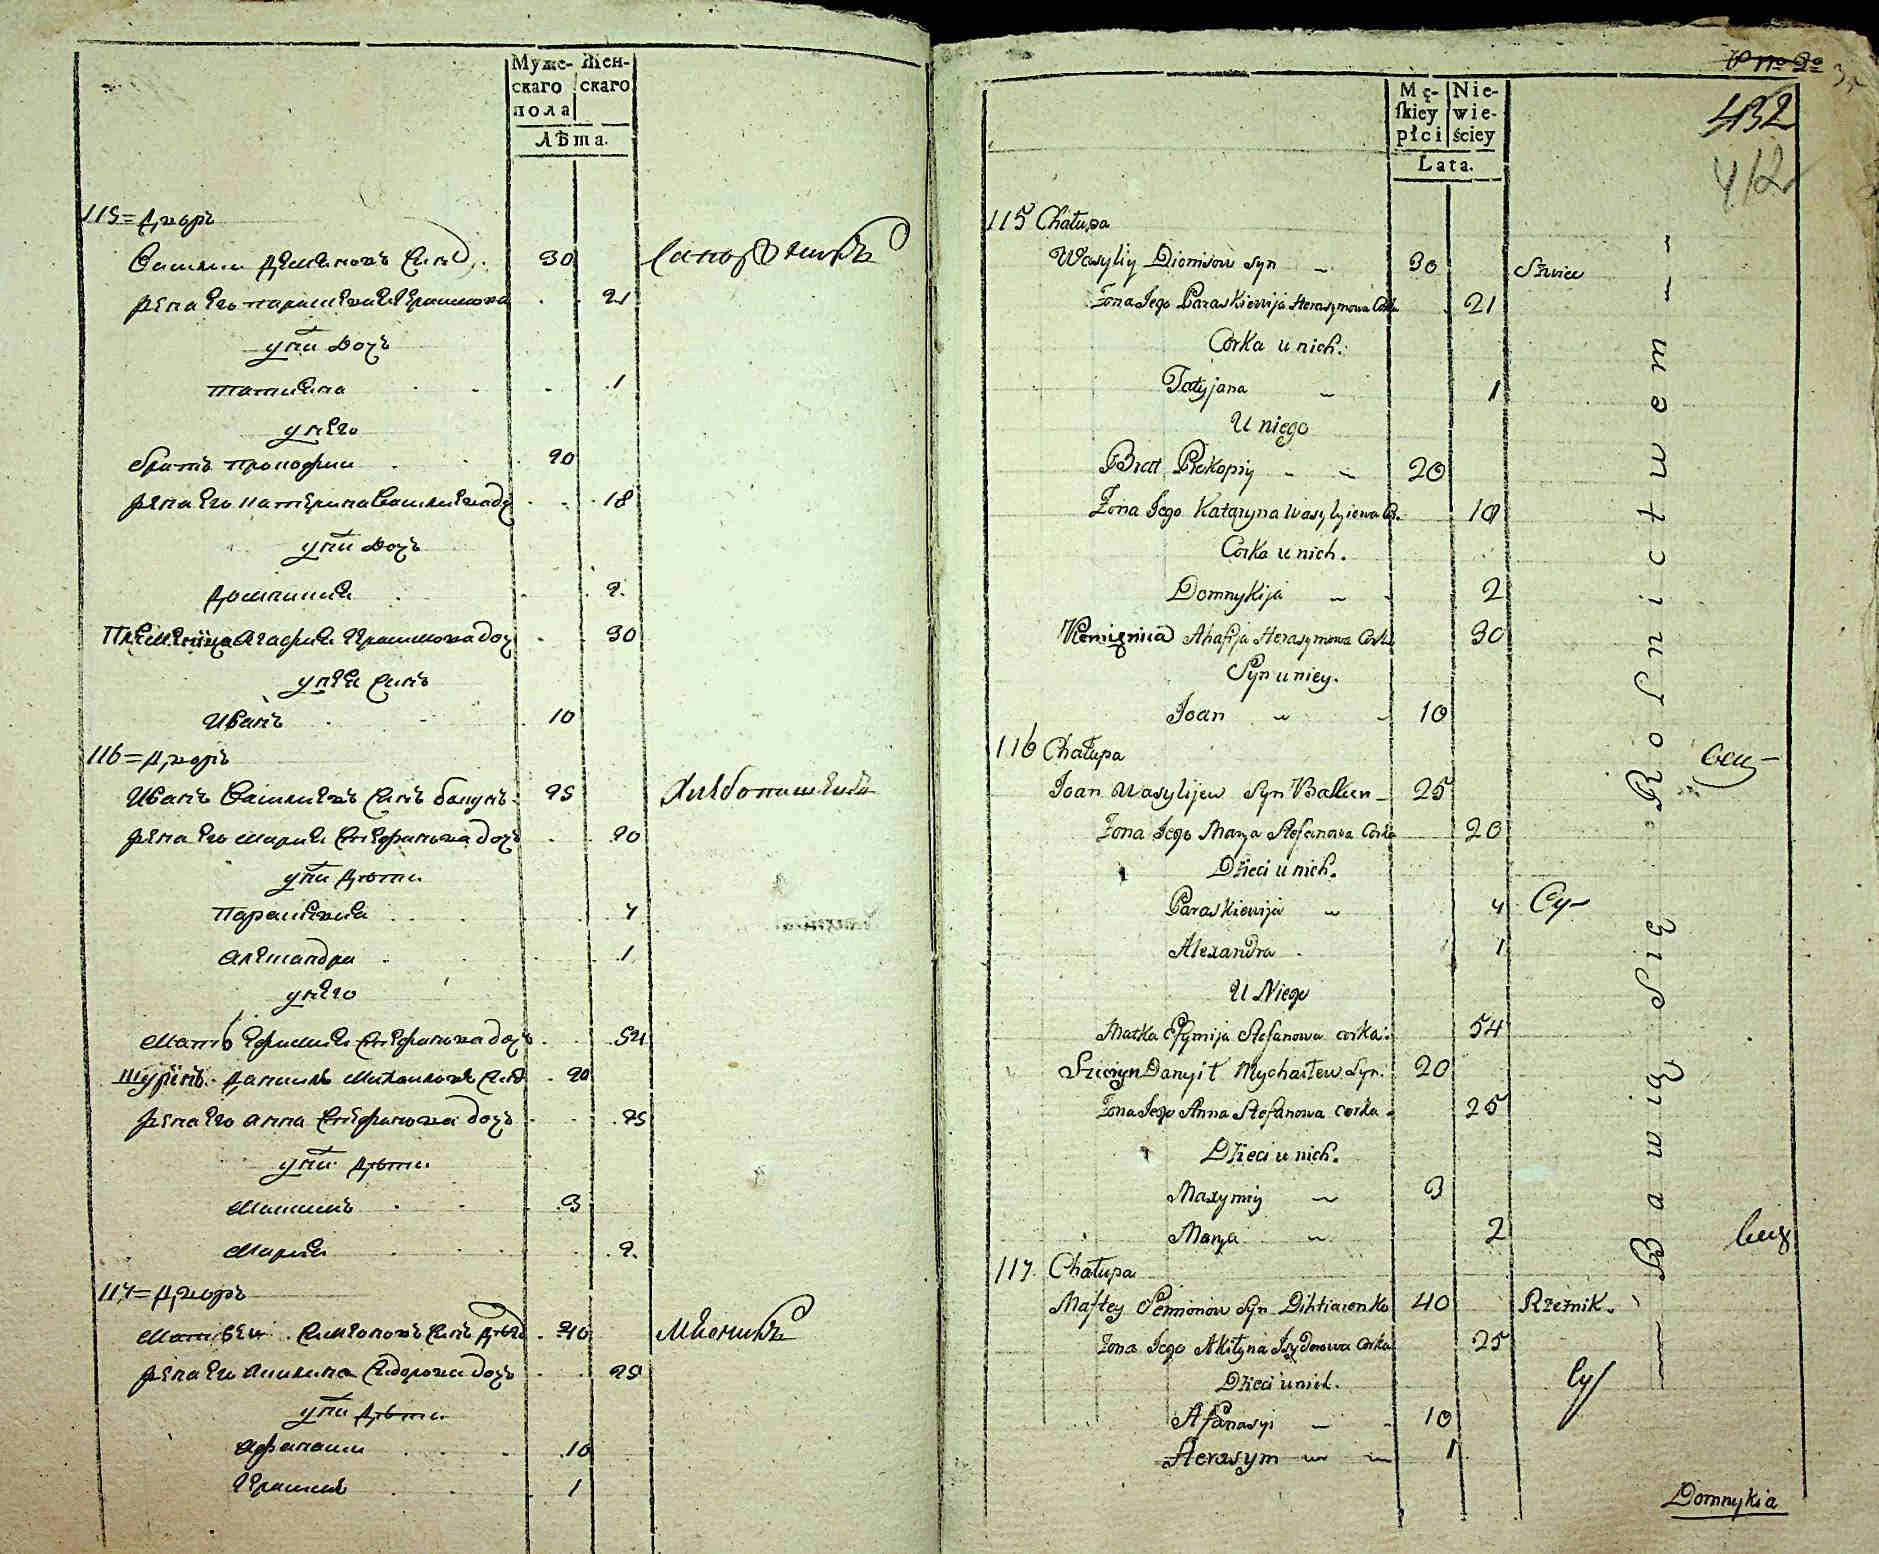 Муже-
скаго
пола
Жен-
скаго
Лѣта.
115 = Дворъ
Василии Деминовъ Синъ 30
Жена его Параскева Герасимова 21
у них дочъ
Татиана 1
у него
братъ Прокофии 20
Жена его Катерина Василиева доч 18
у них дочъ
Домникия 2
Племенница Агафия Герасимова доч 30
у нея синъ
Иванъ 10
116 = Дворъ
Иванъ Василиевъ синъ 25
Жена его Мария Стефанова дочъ 20
у них дѣти
Параскевия 4
Александра 1
у него
Мать Ефимия Стефанова дочъ 54
Шуринъ Даниилъ Михаиловъ Синъ 20
Жена его Анна Стефанова дочъ 25
у них дѣти
Максимъ 3
Мария 2
117 = Дворъ
Матвеи Симеоновъ Синъ 40
Жена его Акилина Сидорова дочъ 25
у них дѣти
Афанасии 10
Герасимъ 1
Сапожникъ
Хлебопашецъ
Мясникъ
№ 2
432
412
Mę-
skiey
płci
Nie-
wie-
ściey
Lata.
115 Chałupa
Wasyliy Dionisow Syn 30 Szwiec
Zona Jego Paraskiewija Herasymowa Corka 21
Corka u nich.
Tatyjana 1
U niego
Brat Prokopiy 20
Zona Jego Kataryna Wasylyiewa C. 18
Corka u nich.
Domnykija 2
Plemięnica Ahafija Herasymowa Corka 30
Syn u niey.
Joan 10
116 Chałupa
Joan Wasylijew Syn Bałkun 25
Zona Jego Marya Stefanowa Corka 20
Dzieci u nich.
Paraskiewija 4
Alexandra 1
U Niego
Matka Efymija Stefanowa corka. 54
Szuryn Danyił Mychaiłew Syn. 20
Zona Jego Anna Stefanowa corka 25
Dzieci u nich.
Maxymiy 3
Marya 2
117 Chałupa
Maftey Semionow Syn Dihtiarenko 40 Rzeźnik.
Zona Jego Akilyna Jzydorowa Corka 25
Dzieci u nich.
Afanasyi 10
Herasym 1
Bawią Się Rolnictwem
Domnykia